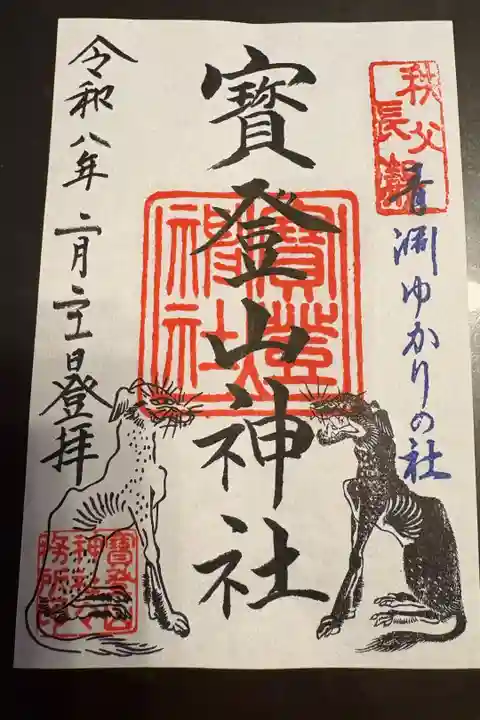 秩父
長瀞
青渕ゆかりの社
寳登山神社
寶登山
神社
令和八年二月二十一日登拝
寶登山
神社々
務所印